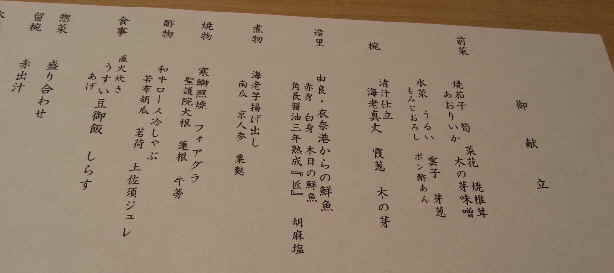 御献立
前菜
焼茄子 筍 菜花 焼椎茸
あおりいか 木の芽味噌
水菜 うるい 雲子 芽葱
もみじおろし ポン酢あん
椀
清汁仕立
海老真丈 霞葱 木の芽
造里
由良・衣奈港からの鮮魚
赤身 白身 本日の鮮魚
角長醤油三年熟成『匠』 胡麻塩
煮物
海老芋揚げ出し
南瓜 京人参 粟麩
焼物
寒鰤照焼 フォアグラ
聖護院大根 蓮根 牛蒡
酢物
和牛ロース冷しゃぶ
若布胡瓜 茗荷 土佐須ジュレ
食事
直火炊き
うすい豆御飯 しらす
あげ
惣菜
盛り合わせ
留椀
赤出汁